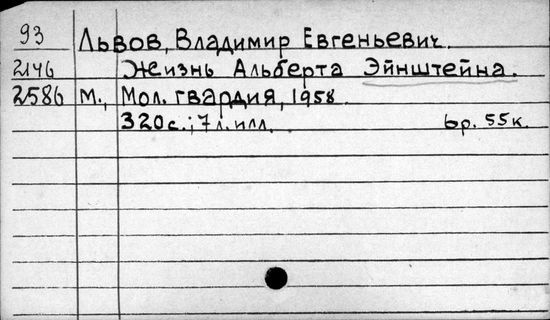 93 Львов, Владимир Евгеньевич.
2146 Жизнь Альберта Эйнштейна.
2586 М., Мол. гвардия, 1958.
320 с.; 7 л. илл. 6р. 55к.